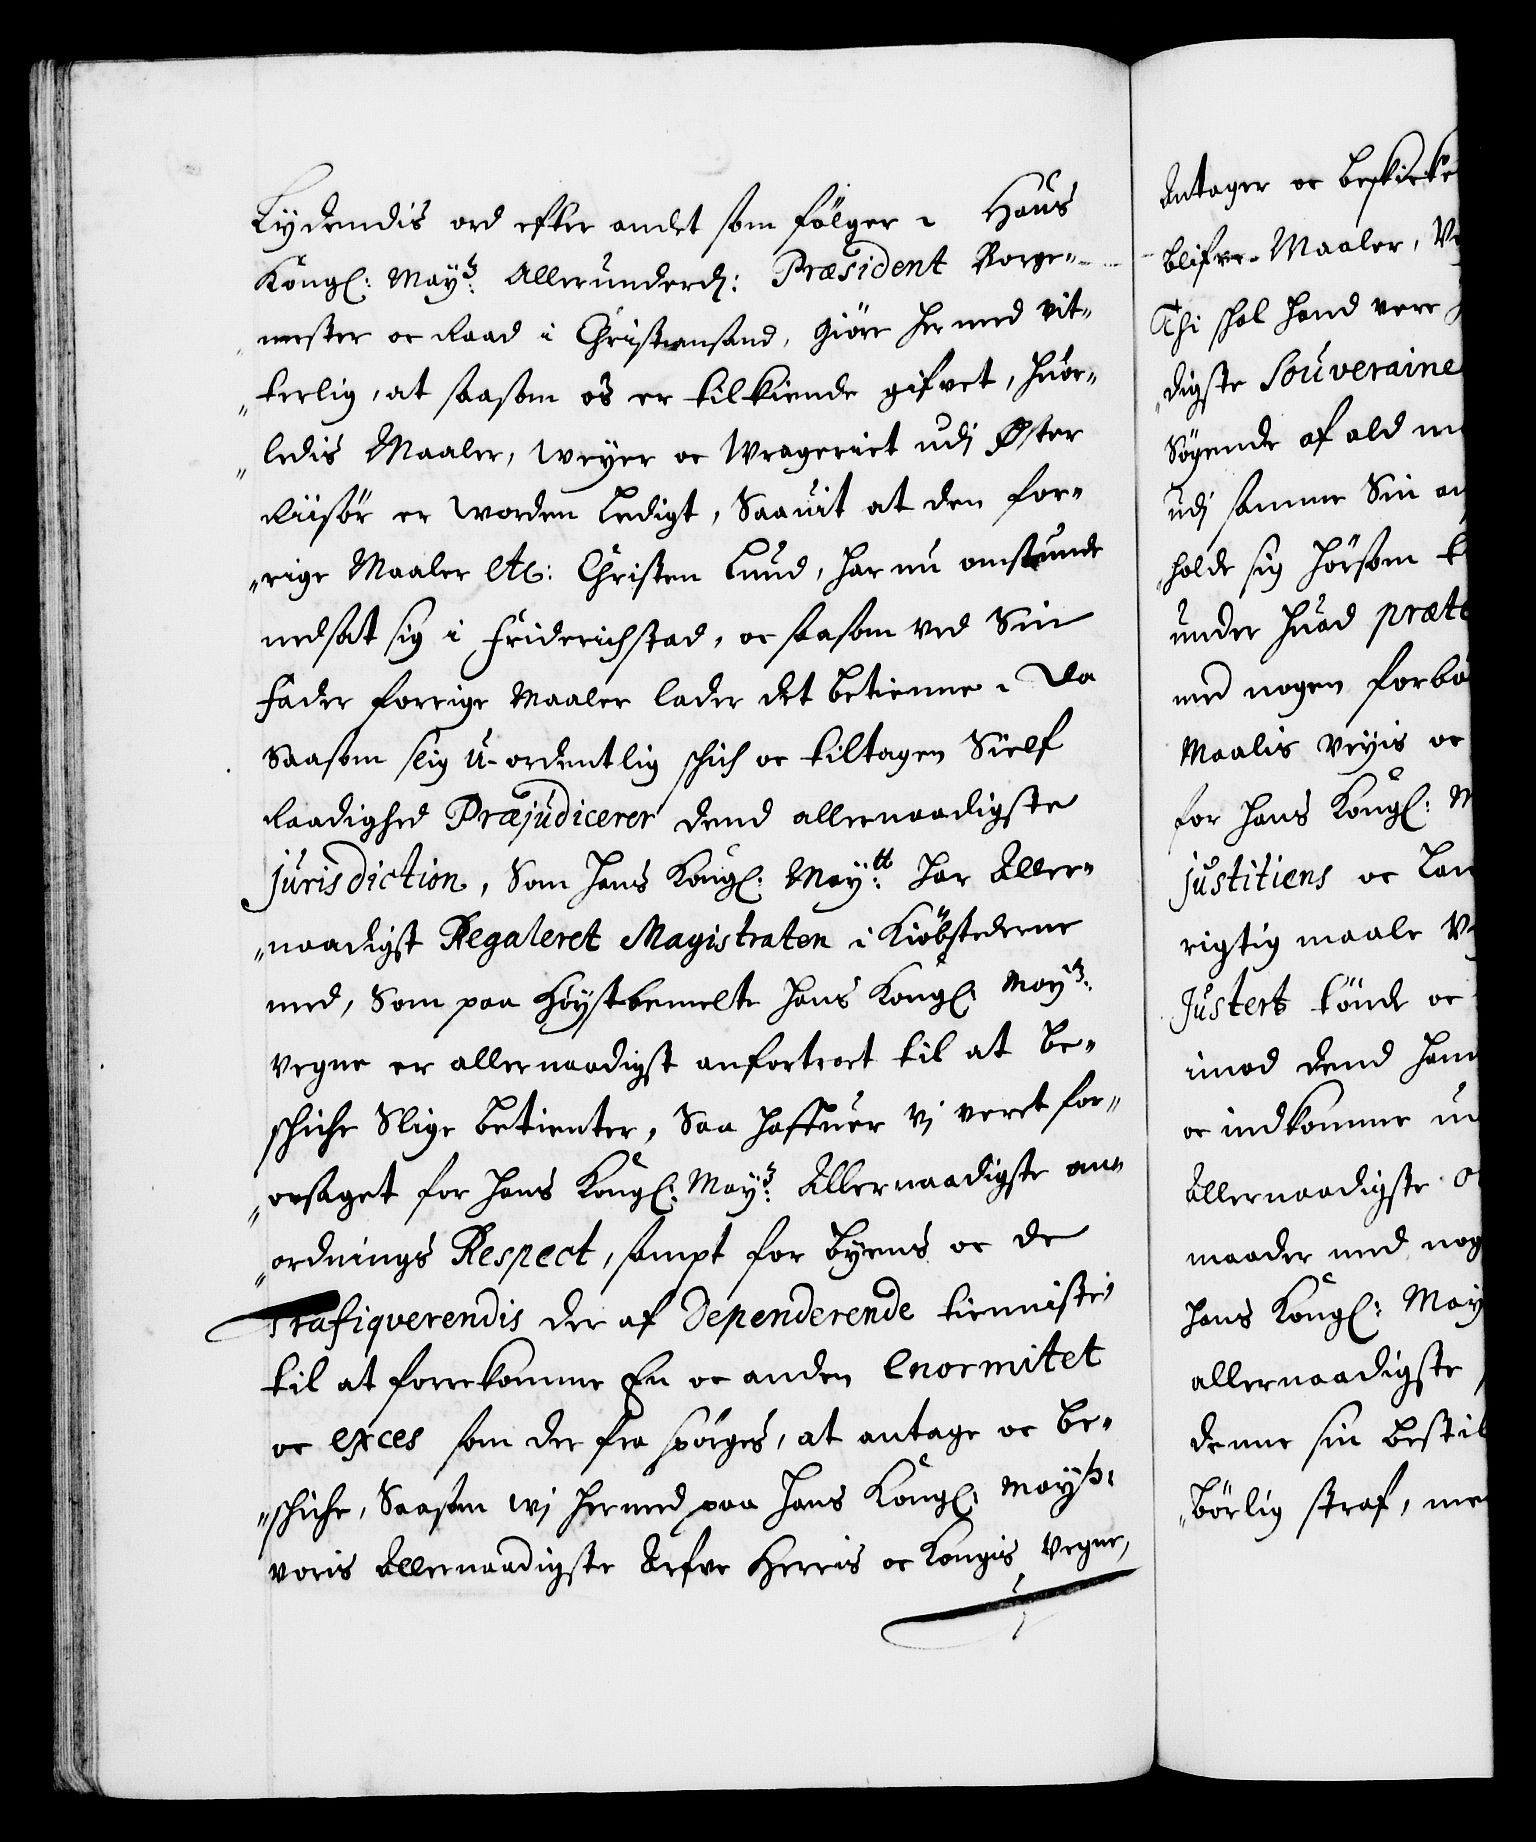 Lydendis ord efter andet som fölger. Hans
Kongl: Mayts: Allerunderd: Præsident Borge-
mester oc Raad i Christiansand, Giöre her med vit-
"terlig, at saasom os er tilkiende gifvet, huor-
"ledis Maaler, Weyer oc Wrageriet udj Øster
Riisör er worden Ledigt, Saauit at den for-
"rige Maaler etc: Christen Lund, har nu omstunde
nedsat sig i Friderichstad, oc saasom ved Sin
Fader forrige Maaler lader det betienne. Da
Saasom slig U-ordentlig schich oc tiltagen Sielf
Raadighed Præjudicerer dend allernaadigste
jurisdiction, Som Hans Kongl: Maytt: har Aller-
"naadigst Regaleret Magistraten i Kiöbstederne
med, Som paa Höystbemelte Hans Kongl: Mays:
vegne er allernaadigst anfortroet til at be-
schiche Slige betienter, Saa haffuer Vj veret for-
"orsaget for Hans Kongl: Mays: Allernaadigste an-
"ordnings Respect, sampt for byens oc de
Trafiqverendis der af Dependerende tienniste
til at forrekomme En oc anden Enormitet
oc exces som der fra spörges, at antage oc be-
"schiche, Saasom wj hermed paa Hans Kongl: Mayts:
voris Allernaadigste Arfve Herris oc Kongis vegne,
Antager oc beskicke
blifve Maaler, V
Thi skal hand vere
"digste Souveraine
Sögende af ald m
udj samme Sin
holde sig hörsom t
under huad præte
med nogen forbo
Maalis veyis oc
for Hans Kongl: M
justitiens oc Lan
rigtig maale V
Justert tönde oc
imod dend ham
oc indkomme u
Allernaadigste O
maader med nog
Hans Kongl: May
allernaadigste
denne sin bestil
"börlig straf, me